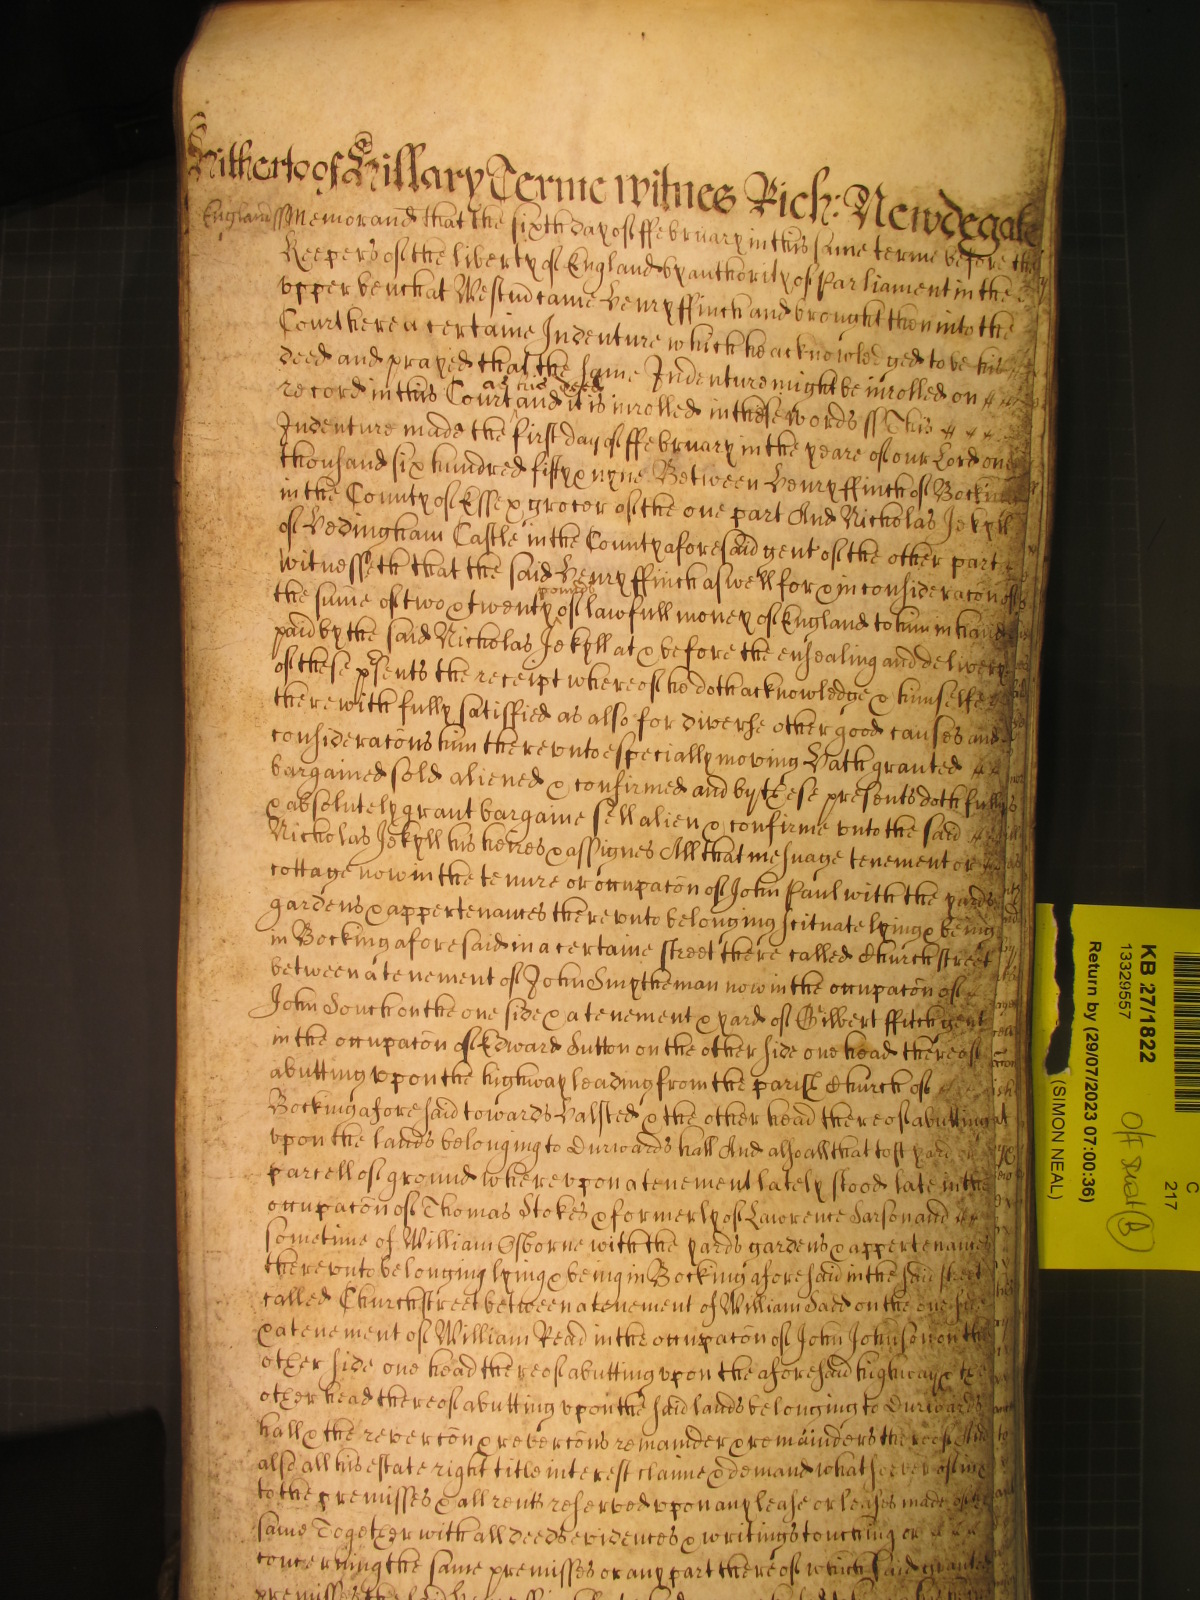 Hitherto of Hillary Terme witnes Rich: Newdegate
England ss Memorand that the sixth day of ffebruary in this same terme before the
Keepers of the liberty of England by authority of Parliament in the
vpper bench at Westm came Henry ffinch and brought then into the
Court here a certaine Indenture which he acknowledged to be his
deed and prayed that the same Indenture might be inrolled on
as his deed
record in this Court and it is inrolled in these words ss This
Indenture made the first day of ffebruary in the yeare of our Lord one
thousand six hundred fifty & nyne Between Henry ffinch of Bocking
in the County of Essex grocer of the one part And Nicholas Jekyll
of Hedingham Castle in the County aforesaid gent of the other part
witnesseth that the said Henry ffinch aswell for & in consideracon of
pounds
the sume of two & twenty of lawfull money of England to him in hand
paid by the said Nicholas Jekyll at & before the ensealing and delivery
of these psents the receipt whereof he doth acknowledge & himselfe
therewith fully satisfied as also for diverse other good causes and
consideracons him therevnto especially moving Hath granted
bargained sold aliened & confirmed and by these presents doth fully
& absolutely grant bargaine sell alien & confirme vnto the said
Nicholas Jekyll his heires & assignes All that mesuage tenement or
cottage now in the tenure or occupacon of John Paul with the yards
gardens & appertenances therevnto belonging scituate lying & being
in Bocking aforesaid in a certaine street there called Church street
between a tenement of John Smytheman now in the occupacon of
John Souch on the one side & a tenement & yard of Gilbert ffitch gent
in the occupacon of Edward Sutton on the other side one head thereof
abutting vpon the highway leading from the parish Church of
Bocking aforesaid towards Halsted & the other head thereof abutting
vpon the lands belonging to Durwards hall And also all that toft yard
parcell of ground wherevpon a tenement lately stood late in the
occupacon of Thomas Stokes & formerly of Lawrence Sarson and
sometime of William Osborne with the yards gardens & appertenances
therevnto belonging lying & being in Bocking aforesaid in the said street
called Church street between a tenement of William Saed on the one side
& a tenement of William Read in the occupacon of John Johnson on the
other side one head thereof abutting vpon the aforesaid highway & the
other head thereof abutting vpon the said lands belonging to Durwards
hall & the revercon & revercons remainder & remainders thereof And
also all his estate right title interest claime & demand whatsoever of in
to the premisses & all rents reserved vpon any lease or leases made of the
same Together with all deeds evidences & writings touching or
concerning the same premisses or any part thereof which said granted
KB 27/1822
13329557
Return by (29/07/2023 07:00:36)
(SIMON NEAL)
C
217